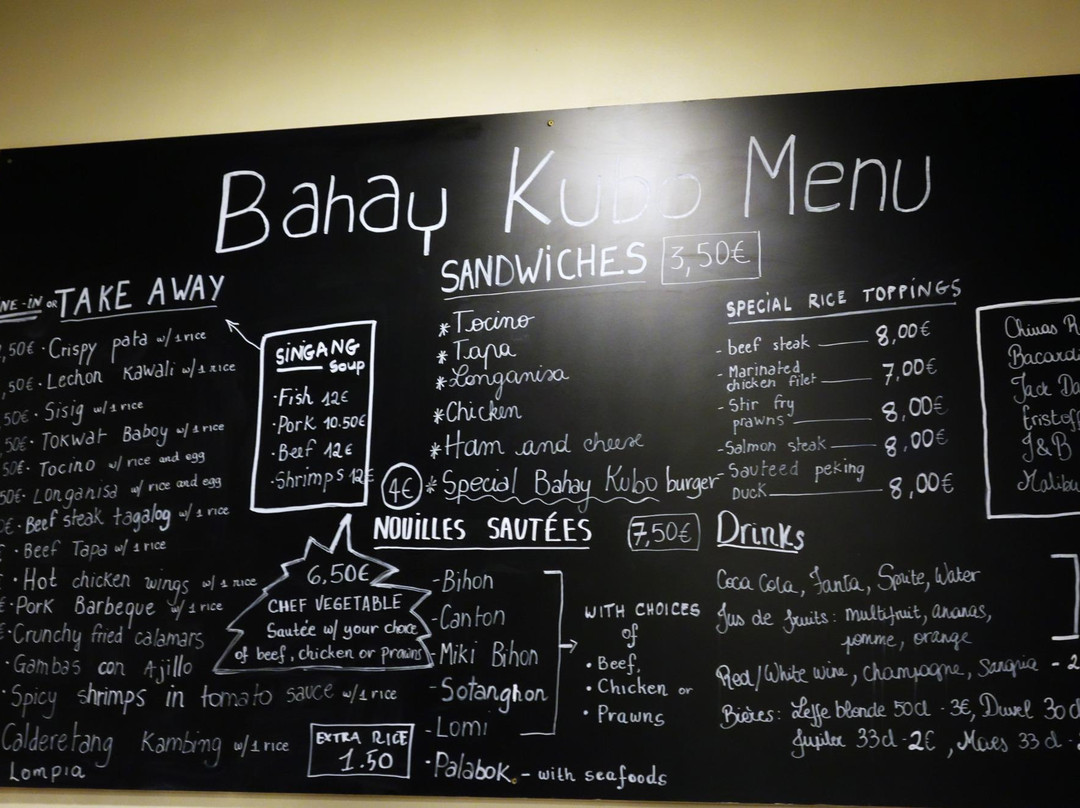 Bahay Kubo Menu
NE-IN OR TAKE AWAY
,50€ · Crispy pata w/ 1 rice
,50€ · Lechon Kawali w/ 1 rice
50€ · Sisig w/ 1 rice
50€ · Tokwat Baboy w/ 1 rice
50€ · Tocino w/ rice and egg
50€ · Longanisa w/ rice and egg
0€ · Beef steak tagalog w/ 1 rice
€ · Beef Tapa w/ 1 rice
€ · Hot chicken wings w/ 1 rice
€ · Pork Barbeque w/ 1 rice
€ · Crunchy fried calamars
· Gambas con Ajillo
· Spicy shrimps in tomato sauce w/ 1 rice
Calderetang Kambing w/ 1 rice
Lompia
SINGANG
Soup
· Fish 12€
· Pork 10.50€
· Beef 12€
· Shrimps 12€
6,50€
CHEF VEGETABLE
Sautée w/ your choice
of beef, chicken or prawns
EXTRA RICE
1.50
SANDWiCHES 3,50€
* Tocino
* Tapa
* Longanisa
* Chicken
* Ham and cheese
4€ * Special Bahay Kubo burger
NOUILLES SAUTÉES 7,50€
- Bihon
- Canton
- Miki Bihon
- Sotanghon
- Lomi
· Palabok - with seafoods
WITH CHOICES
of
· Beef,
· Chicken or
· Prawns
SPECIAL RICE TOPPINGS
- beef steak 8,00€
- Marinated
chicken filet 7,00€
- Stir fry
prawns 8,00€
- Salmon steak 8,00€
- Sauteed peking
Duck 8,00€
Drinks
Coca Cola, Fanta, Sprite, Water
Jus de fruits : multifruit, ananas,
pomme, orange
Red/White wine, champagne, Sangria - 2
Bières : Leffe blonde 50cl · 3€, Duvel 30 cl
Jupiler 33cl · 2€, Maes 33 cl ·
Chivas R
Bacardi
Jack Da
Eristoff
J&B
Malibu